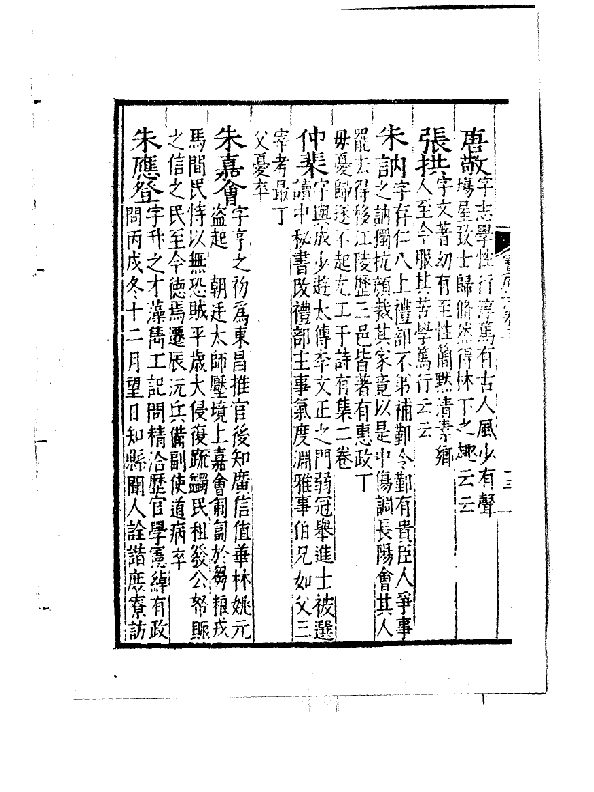 唐敬字志學性行淳篤有古人風少有聲
塲屋致士歸翛然得林下之趣云云
張拱字文著幼有至性簡默清素鄉
人至今服其苦學篤行云云
朱訥字存仁八上禮部不弟補鄞令鄞有貴臣人爭事
之訥獨抗顔裁其家竟以是中傷調長陽會其人
罷去得移江陵歷三邑皆著有惠政丁
毋憂歸遂不起尤工于詩有集二卷
仲棐字與成少遊太傅李文正之門弱冠舉進士被選
讀中秘書改禮部主事氣度淵雅事伯兄如父三
宰考最丁
父憂卒
朱嘉會字亨之初爲東昌推官後知廣信值華林姚元
盜起 朝廷太師壓境上嘉會匍匐於芻粮戎
馬間民恃以無恐賊平歲大侵復疏蠲民租發公帑賑
之信之民至今德焉遷辰沅兵備副使道病卒
朱應登字升之才藻雋工記問精洽歷官學憲綽有政
問丙戌冬十二月望日知縣聞人詮諧庶寮訪